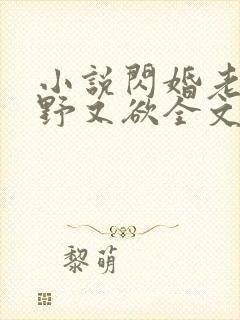 小說閃婚老
野又欲全文
黎萌